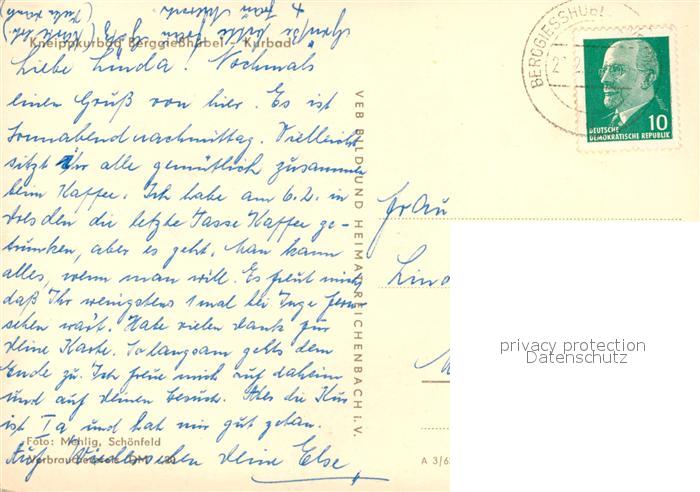 Kneippkurbad Berggießhübel - Kurbad
Liebe Linda! Nochmals
einen Gruß von hier. Es ist
Sonnabendnachmittag. Vielleicht
sitzt Ihr alle gemütlich zusammen
beim Kaffee. Ich habe am 6.2. in
Dresden die letzte Tasse Kaffee ge-
trunken, aber es geht. Man kann
alles, wenn man will. Es freut mich
daß Ihr wenigstens 1 mal bei Inge fern-
sehen wart. Habe vielen Dank für
Deine Karte. So langsam gehts dem
Ende zu. Ich freue mich auf daheim
und auf Deinen Besuch. Aber die Kur
ist Ia und hat mir gut getan.
Foto: Mehlig, Schönfeld
Auf Wiedersehen Deine Else
Verbraucherpreis DM
VEB BILD UND HEIMAT REICHENBACH i. V.
A 3/6
BERGGIESSHÜBEL
10
DEUTSCHE
DEMOKRATISCHE REPUBLIK
Frau
privacy protection
Datenschutz